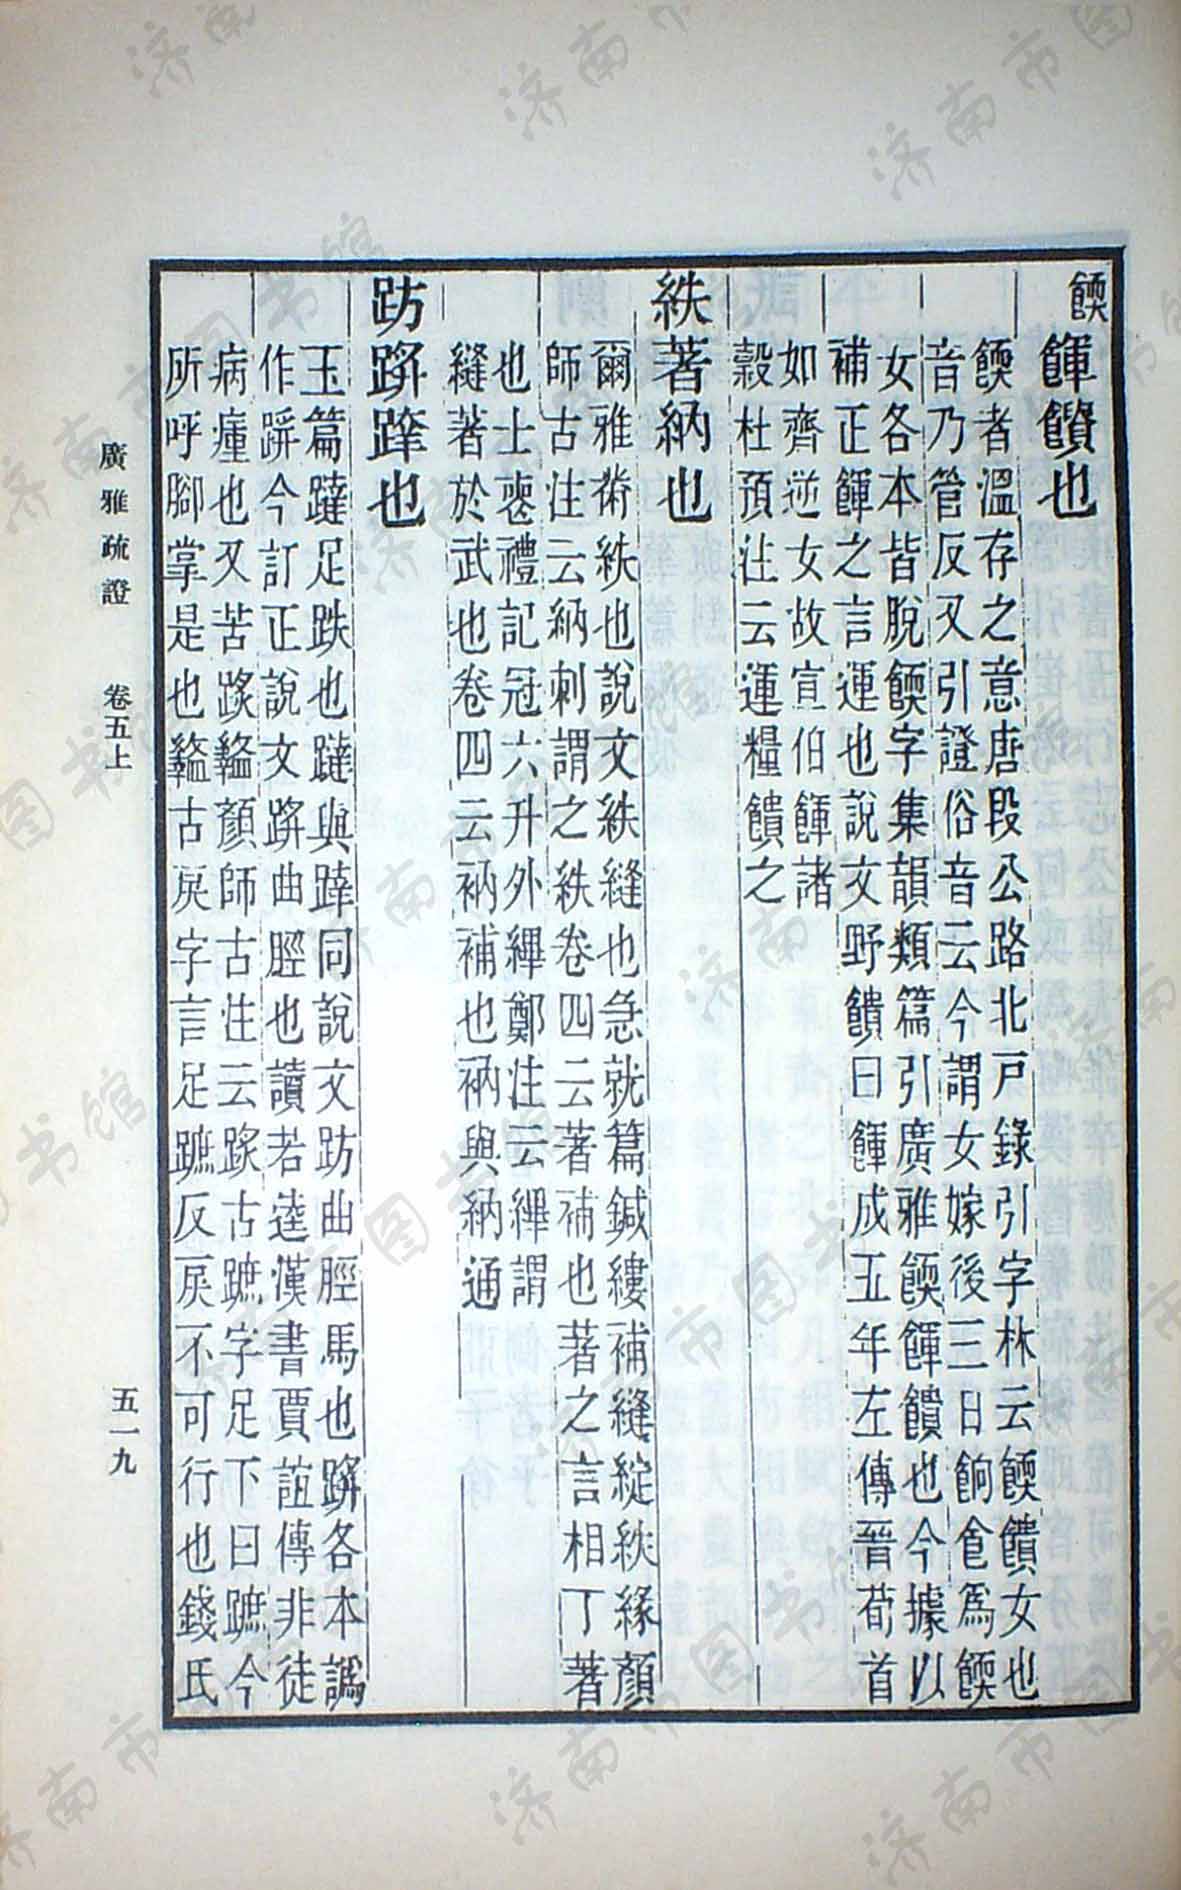 餪
餫饡也
餪者溫存之意唐段公路北戶錄引字林云餪饋女也
音乃管反又引證俗音云今謂女嫁後三日餉食爲餪
女各本皆脫餪字集韻類篇引廣雅餪餫饋也今據以
補正餫之言運也說文野饋曰餫成五年左傳晉荀首
如齊逆女故宣伯餫諸
穀杜預注云運糧饋之
紩著納也
爾雅黹紩也說文紩縫也急就篇鍼縷補縫綻紩緣顏
師古注云納刺謂之紩卷四云著補也著之言相丁著
也士喪禮記冠六升外縪鄭注云縪謂
縫著於武也卷四云衲補也衲與納通
趽跰躠也
玉篇躂足跌也躂與躠同說文趽曲脛馬也跰各本譌
作跰今訂正說文跰曲脛也讀若逵漢書賈誼傳非徒
病瘇也又苦䟽盭顏師古注云䟽古蹠字足下曰蹠今
所呼腳掌是也盭古戾字言足蹠反戾不可行也錢氏
廣雅疏證 卷五上
五一九